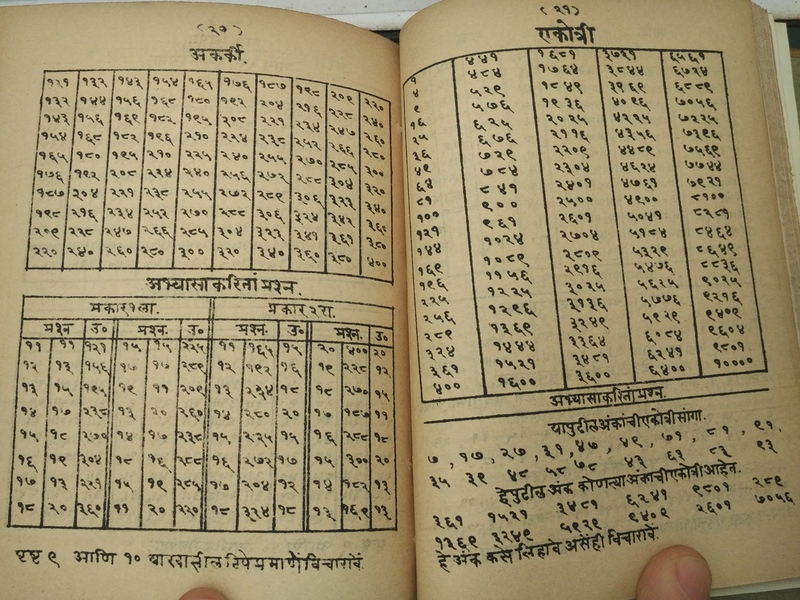 (२०)
अकरकी.
१२१ १३२ १४३ १५४ १६५ १७६ १८७ १९८ २०९ २२०
१३२ १४४ १५६ १६८ १८० १९२ २०४ २१६ २२८ २४०
१४३ १५६ १६९ १८२ १९५ २०८ २२१ २३४ २४७ २६०
१५४ १६८ १८२ १९६ २१० २२४ २३८ २५२ २६६ २८०
१६५ १८० १९५ २१० २२५ २४० २५५ २७० २८५ ३००
१७६ १९२ २०८ २२४ २४० २५६ २७२ २८८ ३०४ ३२०
१८७ २०४ २२१ २३८ २५५ २७२ २८९ ३०६ ३२३ ३४०
१९८ २१६ २३४ २५२ २७० २८८ ३०६ ३२४ ३४२ ३६०
२०९ २२८ २४७ २६६ २८५ ३०४ ३२३ ३४२ ३६१ ३८०
२२० २४० २६० २८० ३०० ३२० ३४० ३६० ३८० ४००
अभ्यासाकरितां प्रश्न.
प्रकार १ला. प्रकार २रा.
प्रश्न उ० प्रश्न. उ० प्रश्न. उ० प्रश्न. उ०
११ ११ १२१ १५ १५ २२५ ११ १६५ १५ २० ४०० २०
१२ १३ १५६ १७ १७ २८९ १२ १९२ १६ १९ २२८ १२
१३ १५ १९५ १९ ११ २०९ १३ २३४ १८ १८ २७० १५
१४ १७ २३८ १३ २० २६० १४ २८० २० १७ १८७ ११
१५ १८ २७० १४ १७ २३८ १५ २२५ १५ १६ २८८ १८
१६ १९ ३०४ १८ १६ २८८ १६ २७२ १७ १५ ३०० २०
१७ १३ २२१ १५ १९ २८५ १७ २०४ १२ १४ १८२ १३
१८ २० ३६० ११ २० २२० १८ ३२४ १८ १३ १६९ १३
पृष्ट ९ आणि १० यावरील टिपेप्रमाणें विचारावें.
(२१)
एकोत्री
१ ४४१ १६८१ ३७२१ ६५६१
४ ४८४ १७६४ ३८४४ ६७२४
९ ५२९ १८४९ ३९६९ ६८८९
१६ ५७६ १९३६ ४०९६ ७०५६
२५ ६२५ २०२५ ४२२५ ७२२५
३६ ६७६ २११६ ४३५६ ७३९६
४९ ७२९ २२०९ ४४८९ ७५६९
६४ ७८४ २३०४ ४६२४ ७७४४
८१ ८४१ २४०१ ४७६१ ७९२१
१०० ९०० २५०० ४९०० ८१००
१२१ ९६१ २६०१ ५०४१ ८२८१
१४४ १०२४ २७०४ ५१८४ ८४६४
१६९ १०८९ २८०९ ५३२९ ८६४९
१९६ ११५६ २९१६ ५४७६ ८८३६
२२५ १२२५ ३०२५ ५६२५ ९०२५
२५६ १२९६ ३१३६ ५७७६ ९२१६
२८९ १३६९ ३२४९ ५९२९ ९४०९
३२४ १४४४ ३३६४ ६०८४ ९६०४
३६१ १५२१ ३४८१ ६२४१ ९८०१
४०० १६०० ३६०० ६४०० १००००
अभ्यासाकरितां प्रश्न.
यापुढील अंकांची एकोत्री सांगा.
७ , १७ , २७ , ३१ , ४७ , ४९ , ७१ , ८१ , ९१.
३५ ३९ ४८ ५८ ७८ ४३ ६३ ८३ ९३
हे पुढील अंक कोणत्या अंकाची एकोत्री आहेत.
३६१ १५२१ ३४८१ ६२४१ ९८०१ २८९
१३६९ ३२४९ ५९२९ ९४०९ २६०१ ७०५६
हे अंक कसे लिहावे असेंही विचारावें.